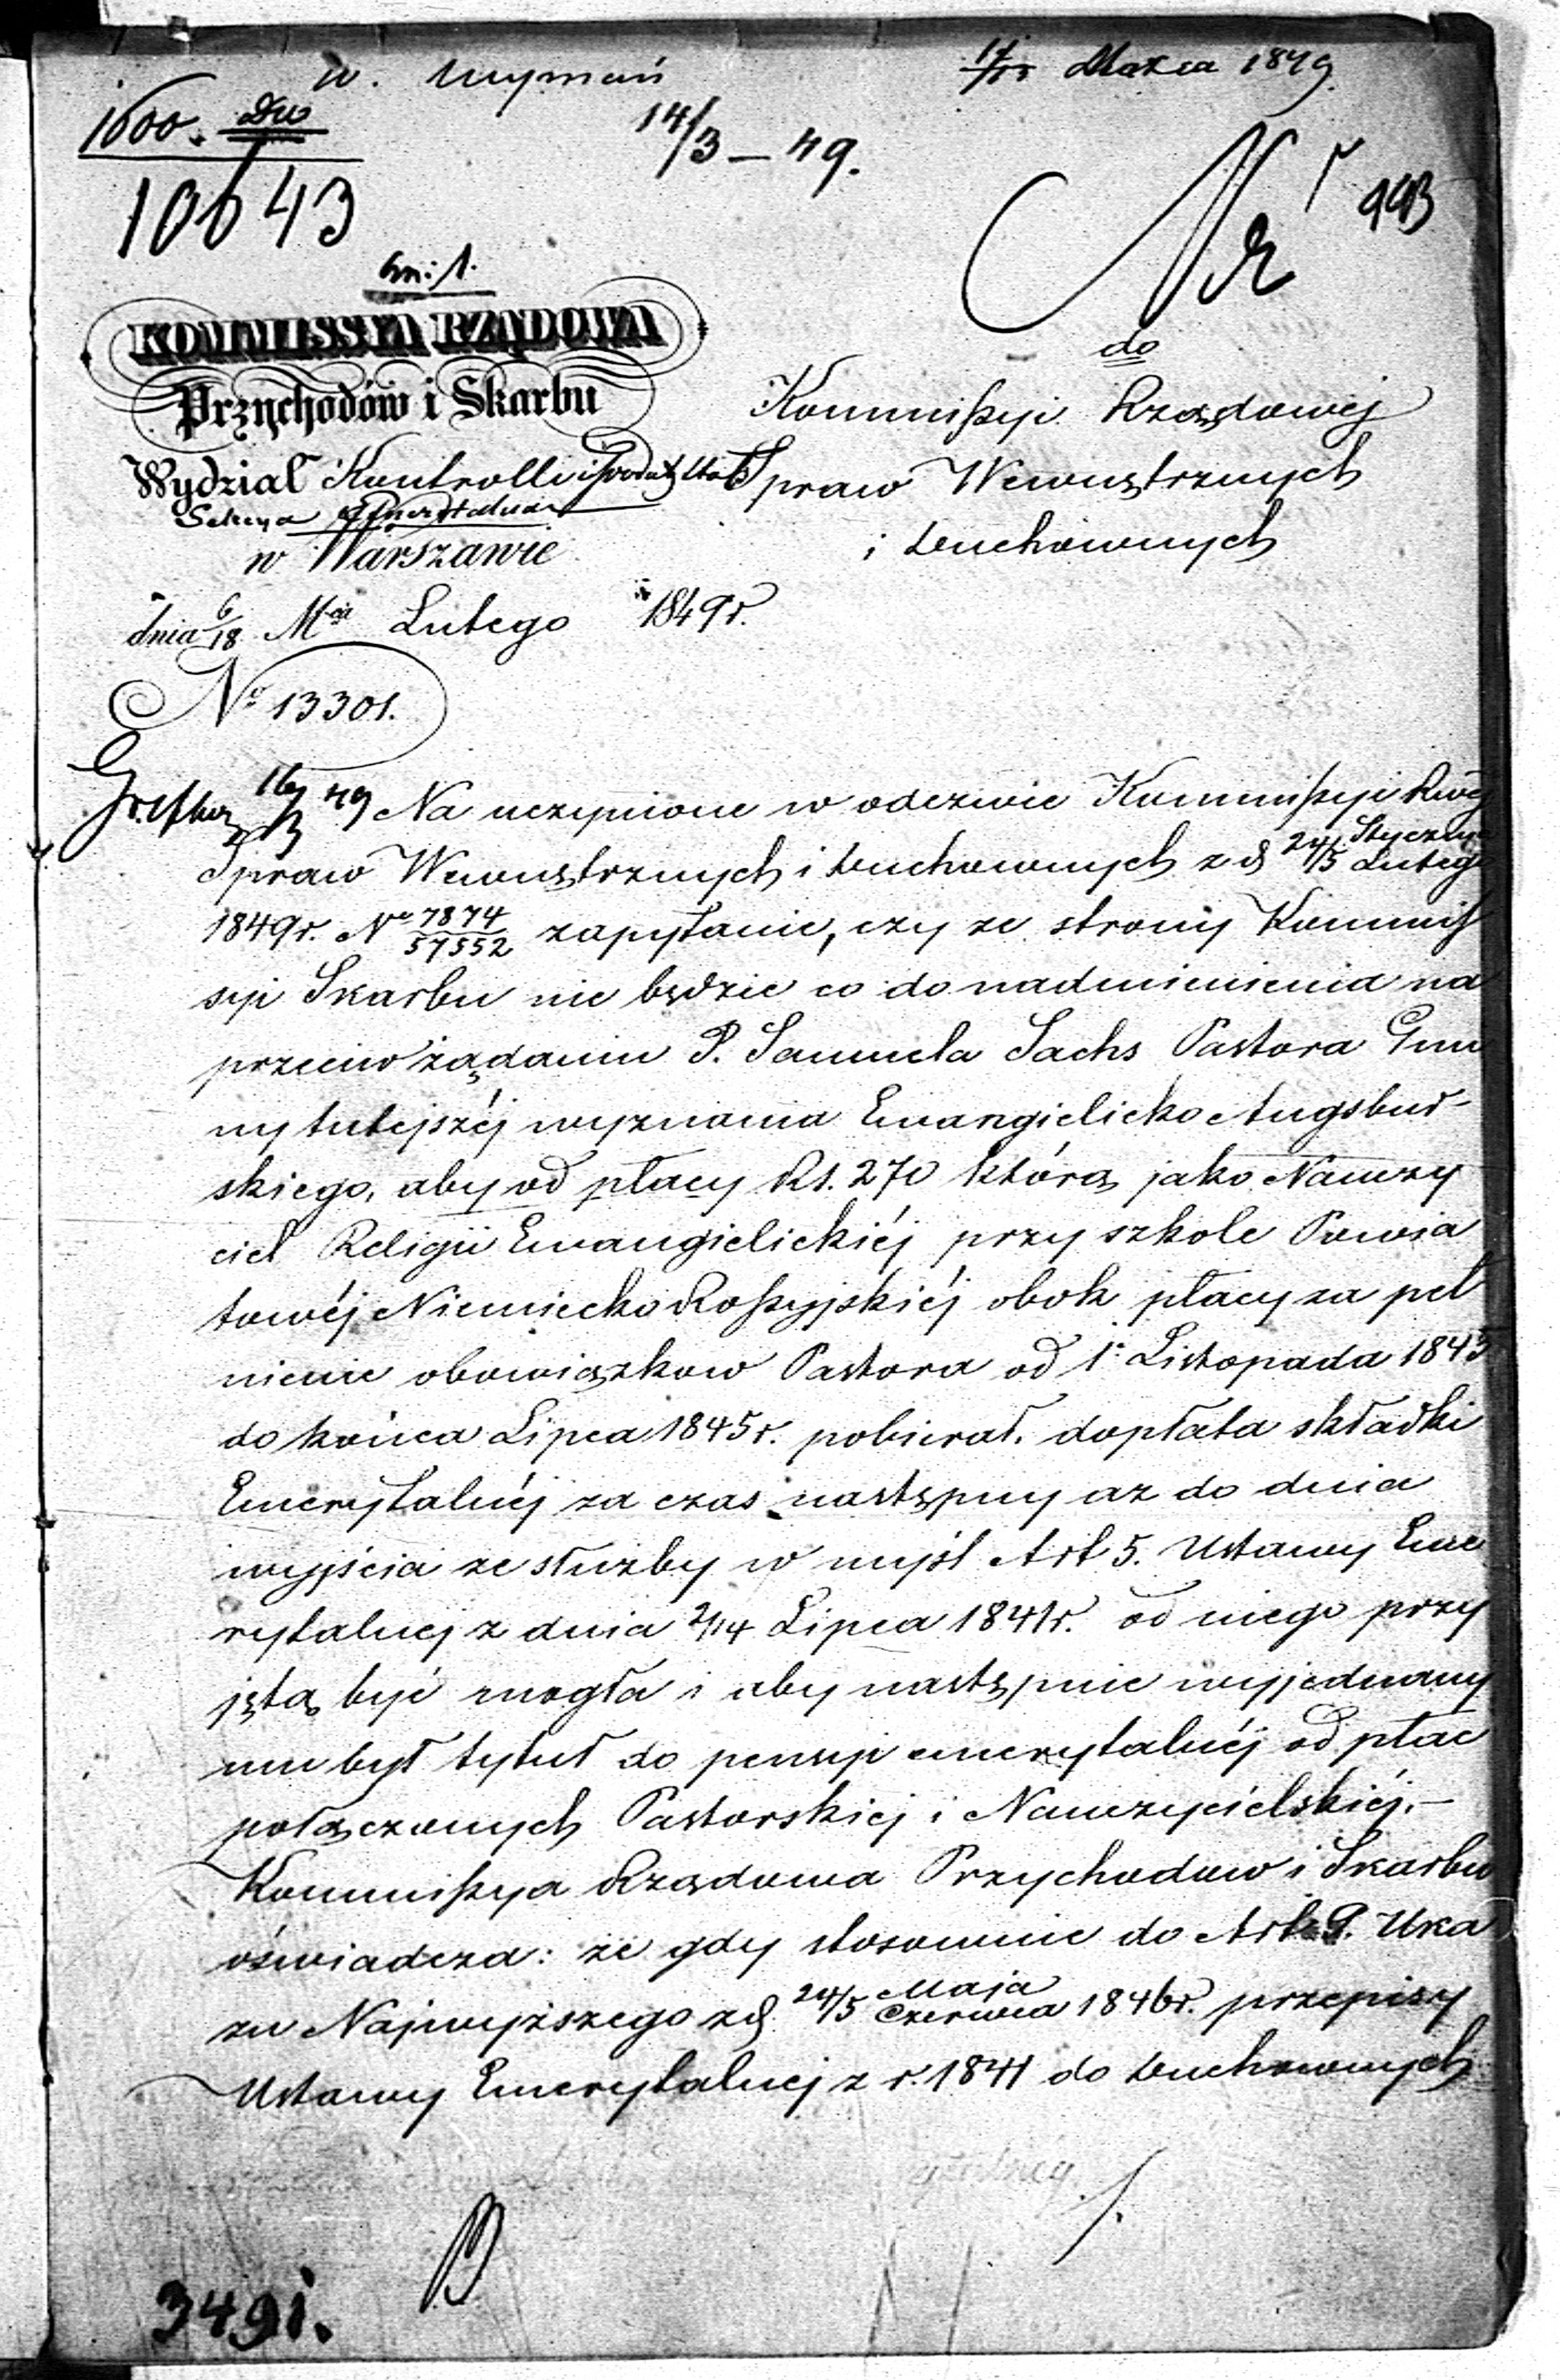 w. wyznań
Marca 1849
1600. Du
10643
14/3 – 49.
Nr
993
KOMMISSYA RZĄDOWA
Przychodów i Skarbu
Wydział Kontrolli
Sekcya Emerytalna
w Warszawie
dnia 6/18 Mca Lutego 1849 r.
No 13301.
do
Kommissyi Rządowej
Spraw Wewnętrznych
i Duchownych
49 Na uczynione w odezwie Kommissyi Rwej
Spraw Wewnętrznych i Duchownych z d 24/5 Stycznia/Lutego
1849 r. No 7874/57552 zapytanie, czy ze strony Kommis
syi Skarbu nie będzie co do nadmienienia na
przeciw żądaniu P. Samuela Sachs Pastora Gmi
ny tutejszéj wyznania Ewangielicko Augsbur-
skiego, aby od płacy Rs. 270 którą jako Nauczy
ciel Religii Ewangielickiéj przy szkole Powia
towéj Niemiecko Rossyjskiéj obok płacy za peł
nienie obowiązkow Pastora od 1o Listopada 1843
do końca Lipca 1845 r. pobierał, dopłata składki
Emerytalnéj za czas następny az do dnia
wyjścia ze służby w myśl Art 5. Ustawy Eme
rytalnej z dnia 2/14 Lipca 1841 r. od niego przy
jętą być mogła i aby następnie wyjednany
mu był tytuł do pensyi emerytalnéj od płac
połączonych Pastorskiej i Nauczycielskiéj.–
Kommissya Rządowa Przychodow i Skarbu
oświadcza: że gdy stosownie do Art 9. Uka
zu Najwyższego z d. 24/5 Maja/Czerwca 1846 r. przepisy
Ustawy Emerytalnej z r. 1841 do Duchownych
3491.